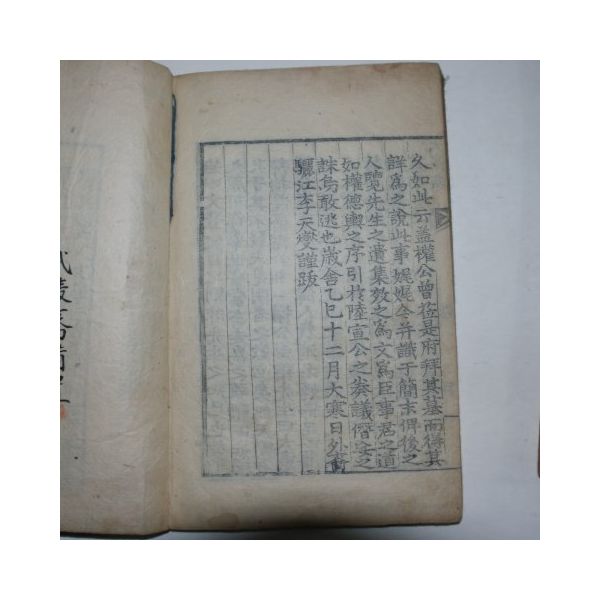 久如此云盖權公曾莅是府拜其墓而得其
詳爲之說此事娓娓今并識于簡末俾後之
人覽先生之遺集效之爲文爲臣事君之道
如權德輿之序引於陸宣公之奏議僭妄之
誅烏敢逃也歲舍乙巳十二月大寒日外裔
驪江李天燮謹跋